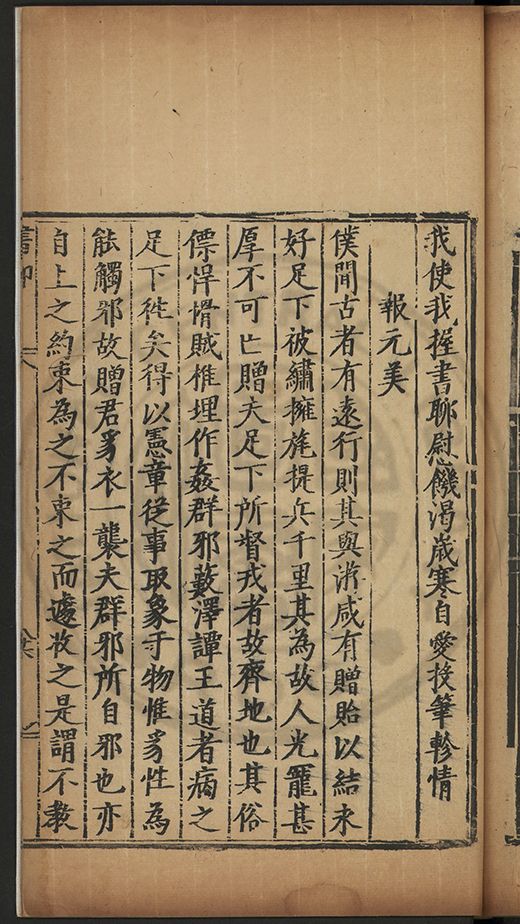 我使我握書聊慰饑渴歲寒自愛投筆軫情
報元美
僕聞古者有遠行則其與游咸有贈貽以結末
好足下被繡擁旄提兵千里其為故人光寵甚
厚不可亡贈夫足下所督戎者故齊地也其俗
僄悍惰賊椎埋作姦群邪藪澤譚王道者病之
足下徃矣得以憲章從事取象于物惟豸性為
能觸邪故贈君豸衣一襲夫群邪所自邪也亦
自上之約束為之不束之而遽攷之是謂不教